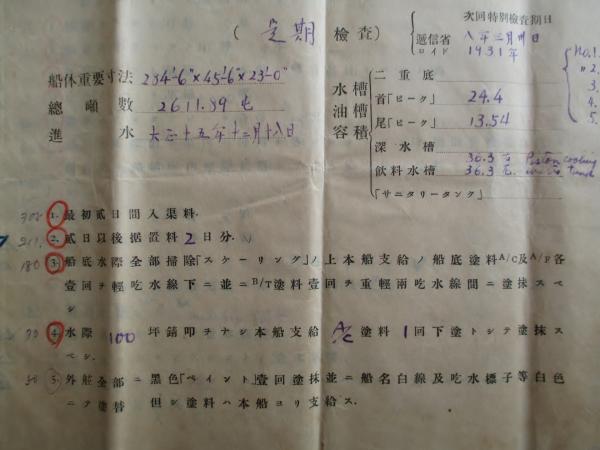 (定期 檢査)
次回特別檢査期日
遞信省 八年三月卅日
ロイド 1931年
船体重要寸法 234'-6"×45'-6"×23'-0"
總噸數 2611.89 屯
進水 大正十五年十二月十八日
水槽
油槽
容積
二重底
首「ピーク」 24.4
尾「ピーク」 13.54
深水槽
30.3 Piston cooling
飲料水槽 36.3
「サニタリータンク」
No.1.
"2.
3.
4.
5.
1. 最初貳日間入渠料.
2. 貳日以後据置料2日分.
180 3. 船底水際全部掃除「スケーリング」ノ上本船支給ノ船底塗料A/C及A/F各
壹回ヲ輕吃水線下ニ並ニB/T塗料壹回ヲ重輕兩吃水線間ニ塗抹スベ
シ
4. 水際100坪錆卽ヲナシ本船支給A/C塗料1回下塗トシテ塗抹ス
ベシ.
50 5. 外舷全部ニ黑色「ペイント」壹回塗抹並ニ船名白線及吃水標子等白色
ニテ塗替 但シ塗料ハ本船ヨリ支給ス.